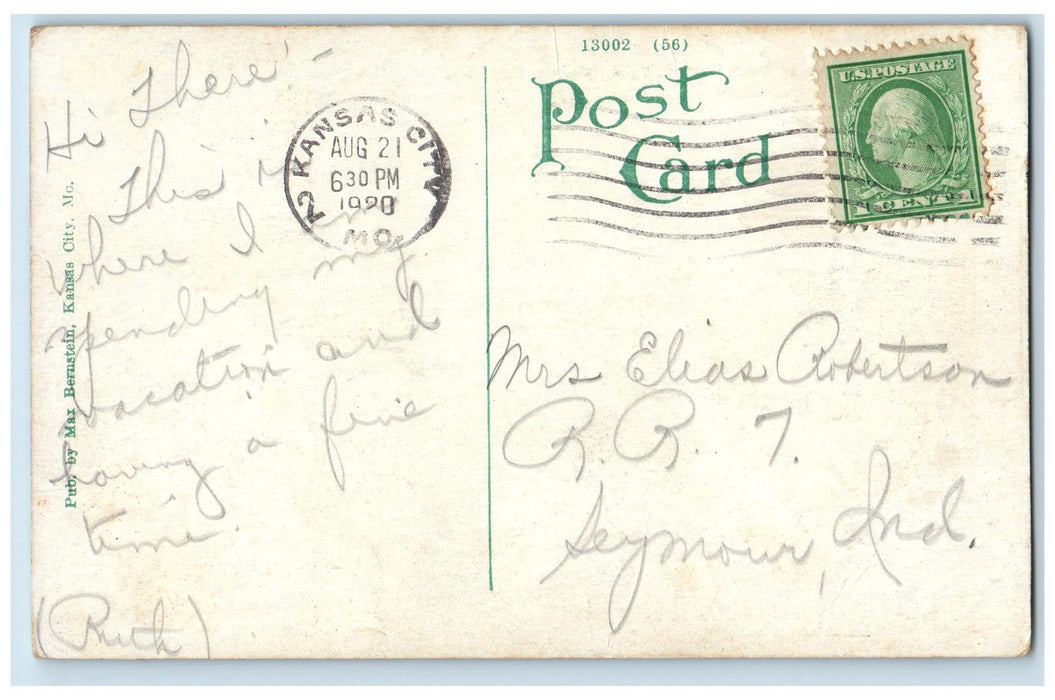 13002 (56)
Post
Card
U.S. POSTAGE
1 CENT 1
KANSAS CITY
2
AUG 21
6 30 PM
1920
MO.
Hi There -
This is
where I
spending my
vacation and
having a fine
time.
(Ruth)
Pub. by Max Bernstein, Kansas City, Mo.
Mrs Elias Robertson
R. R. 7.
Seymour, Ind.